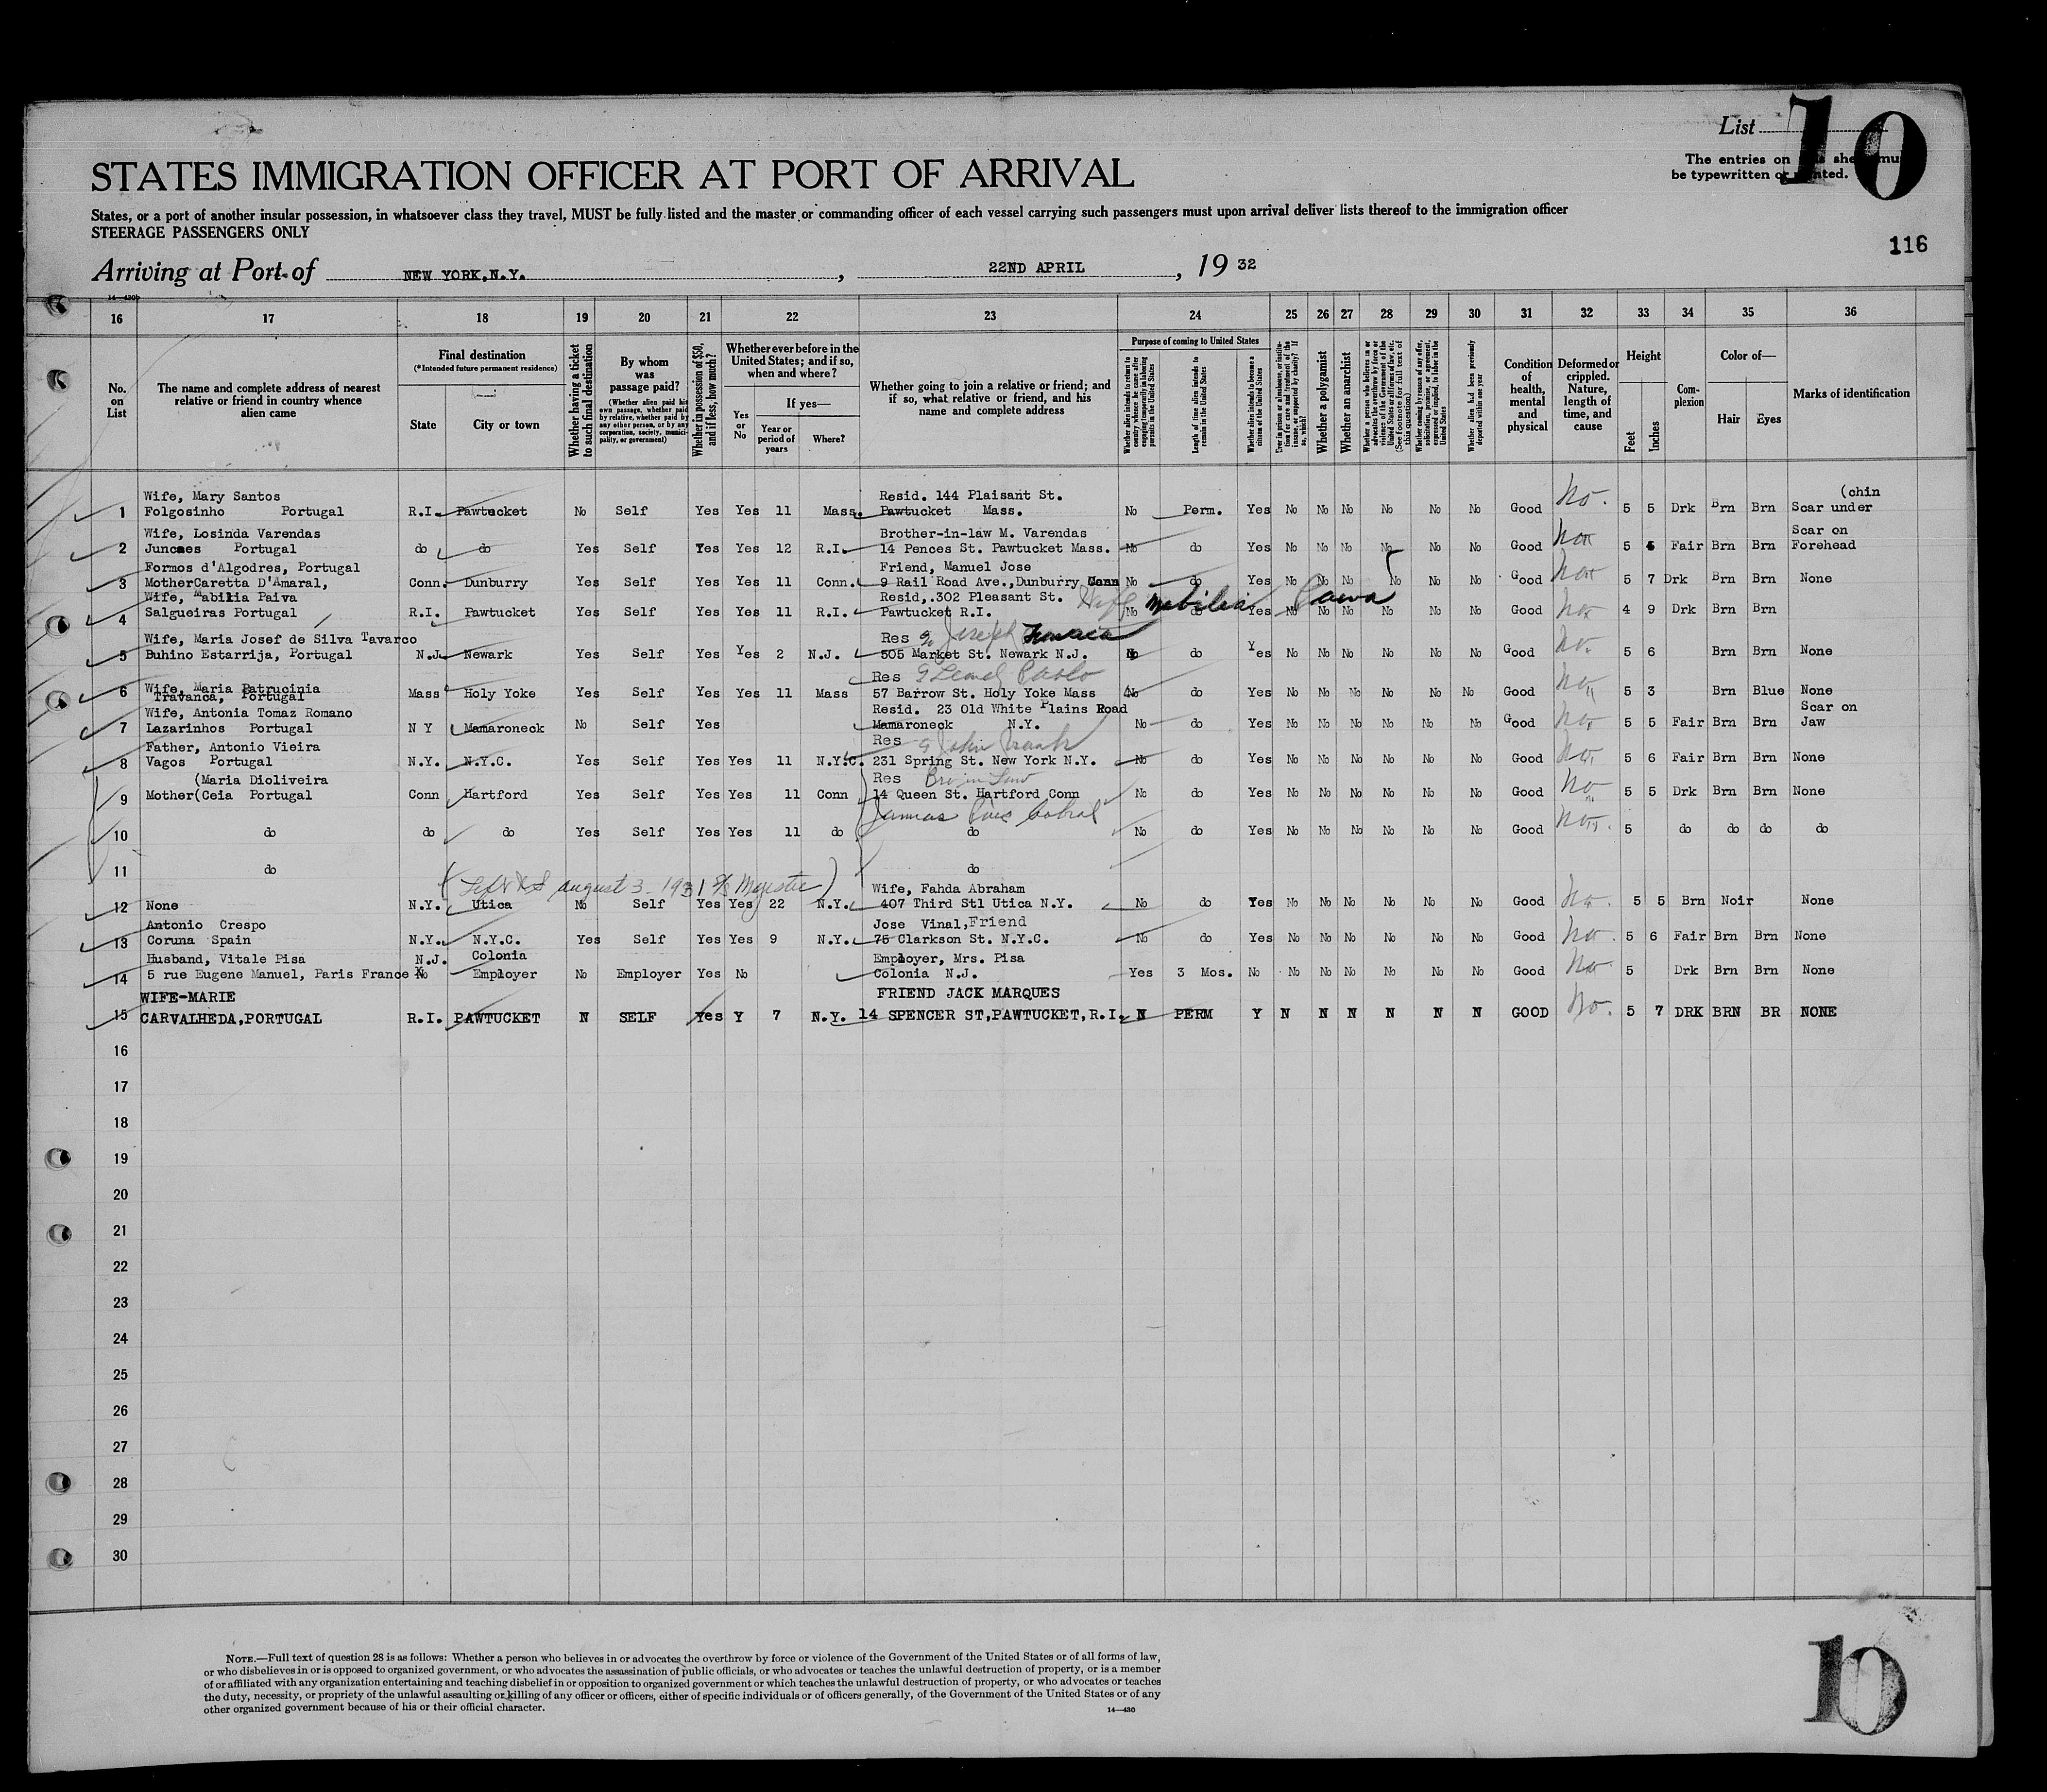 List 10
The entries on this sheet must
be typewritten or printed.
STATES IMMIGRATION OFFICER AT PORT OF ARRIVAL
States, or a port of another insular possession, in whatsoever class they travel, MUST be fully listed and the master or commanding officer of each vessel carrying such passengers must upon arrival deliver lists thereof to the immigration officer
STEERAGE PASSENGERS ONLY
116
Arriving at Port of NEW YORK,N.Y. , 22ND APRIL , 19 32
14—430
16 17 18 19 20 21 22 23 24 25 26 27 28 29 30 31 32 33 34 35 36
No. on List
The name and complete address of nearest relative or friend in country whence alien came
Final destination
(*Intended future permanent residence)
State City or town
Whether having a ticket to such final destination
By whom was passage paid?
(Whether alien paid his own passage, whether paid by relative, whether paid by any other person, or by any corporation, society, municipality, or government)
Whether in possession of $50, and if less, how much?
Whether ever before in the United States; and if so, when and where?
Yes or No
If yes—
Year or period of years
Where?
Whether going to join a relative or friend; and if so, what relative or friend, and his name and complete address
Purpose of coming to United States
Whether alien intends to return to country whence he came after engaging temporarily in laboring pursuits in the United States
Length of time alien intends to remain in the United States
Whether alien intends to become a citizen of the United States
Ever in prison or almshouse, or institution for care and treatment of the insane, or supported by charity? If so, which?
Whether a polygamist
Whether an anarchist
Whether a person who believes in or advocates the overthrow by force or violence of the Government of the United States or all forms of law, etc. (See footnote for full text of this question)
Whether coming by reason of any offer, solicitation, promise, or agreement, expressed or implied, to labor in the United States
Whether alien had been previously deported within one year
Condition of health, mental and physical
Deformed or crippled. Nature, length of time, and cause
Height
Feet Inches
Complexion
Color of—
Hair Eyes
Marks of identification
Wife, Mary Santos Resid. 144 Plaisant St. (chin
1 Folgosinho Portugal R.I. Pawtucket No Self Yes Yes 11 Mass. Pawtucket Mass. No Perm. Yes No No No No No No Good No. 5 5 Drk Brn Brn Scar under
Wife, Losinda Varendas Brother-in-law M. Varendas Scar on
2 Juncaes Portugal do do Yes Self Yes Yes 12 R.I. 14 Pences St. Pawtucket Mass. No do Yes No No No No No No Good No 5 Fair Brn Brn Forehead
Formos d'Algodres, Portugal Friend, Manuel Jose
3 MotherCaretta D'Amaral, Conn. Dunburry Yes Self Yes Yes 11 Conn. 9 Rail Road Ave.,Dunburry Conn No do Yes No No No No No No Good No 5 7 Drk Brn Brn None
Wife, Mabilia Paiva Resid,.302 Pleasant St. Wife Mabilia Paiva
4 Salgueiras Portugal R.I. Pawtucket Yes Self Yes Yes 11 R.I. Pawtucket R.I. No do Yes No No No No No No Good No 4 9 Drk Brn Brn
Wife, Maria Josef de Silva Tavarco Res Joseph Fonseca
5 Buhino Estarrija, Portugal N.J. Newark Yes Self Yes Yes 2 N.J. 505 Market St. Newark N.J. No do Yes No No No No No No Good No. 5 6 Brn Brn None
Wife, Maria Patrucinia Res
6 Travanca, Portugal Mass Holy Yoke Yes Self Yes Yes 11 Mass 57 Barrow St. Holy Yoke Mass No do Yes No No No No No No Good No 5 3 Brn Blue None
Wife, Antonia Tomaz Romano Resid. 23 Old White Plains Road Scar on
7 Lazarinhos Portugal N Y Mamaroneck No Self Yes Mamaroneck N.Y. No do Yes No No No No No No Good No 5 5 Fair Brn Brn Jaw
Father, Antonio Vieira Res John
8 Vagos Portugal N.Y. N.Y.C. Yes Self Yes Yes 11 N.Y.C. 231 Spring St. New York N.Y. No do Yes No No No No No No Good No 5 6 Fair Brn Brn None
(Maria Dioliveira Res Bro in Law
9 Mother(Ceia Portugal Conn Hartford Yes Self Yes Yes 11 Conn 14 Queen St. Hartford Conn No do Yes No No No No No No Good No 5 5 Drk Brn Brn None
Cabral
10 do do do Yes Self Yes Yes 11 do do No do Yes No No No No No No Good No 5 do do do do
11 do do
(Left US august 3 - 1931 S/S Majestic) Wife, Fahda Abraham
12 None N.Y. Utica No Self Yes Yes 22 N.Y. 407 Third Stl Utica N.Y. No do Yes No No No No No No Good No. 5 5 Brn Noir None
Antonio Crespo Jose Vinal,Friend
13 Coruna Spain N.Y. N.Y.C. Yes Self Yes Yes 9 N.Y. 75 Clarkson St. N.Y.C. No do Yes No No No No No No Good No. 5 6 Fair Brn Brn None
Husband, Vitale Pisa N.J. Colonia Employer, Mrs. Pisa
14 5 rue Eugene Manuel, Paris France No Employer No Employer Yes No Colonia N.J. Yes 3 Mos. No No No No No No No Good No 5 Drk Brn Brn None
WIFE-MARIE FRIEND JACK MARQUES
15 CARVALHEDA,PORTUGAL R.I. PAWTUCKET N SELF Yes Y 7 N.Y. 14 SPENCER ST,PAWTUCKET,R.I. N PERM Y N N N N N N GOOD No. 5 7 DRK BRN BR NONE
16
17
18
19
20
21
22
23
24
25
26
27
28
29
30
NOTE.—Full text of question 28 is as follows: Whether a person who believes in or advocates the overthrow by force or violence of the Government of the United States or of all forms of law,
or who disbelieves in or is opposed to organized government, or who advocates the assassination of public officials, or who advocates or teaches the unlawful destruction of property, or is a member
of or affiliated with any organization entertaining and teaching disbelief in or opposition to organized government or which teaches the unlawful destruction of property, or who advocates or teaches
the duty, necessity, or propriety of the unlawful assaulting or killing of any officer or officers, either of specific individuals or of officers generally, of the Government of the United States or of any
other organized government because of his or their official character.
14—430
10